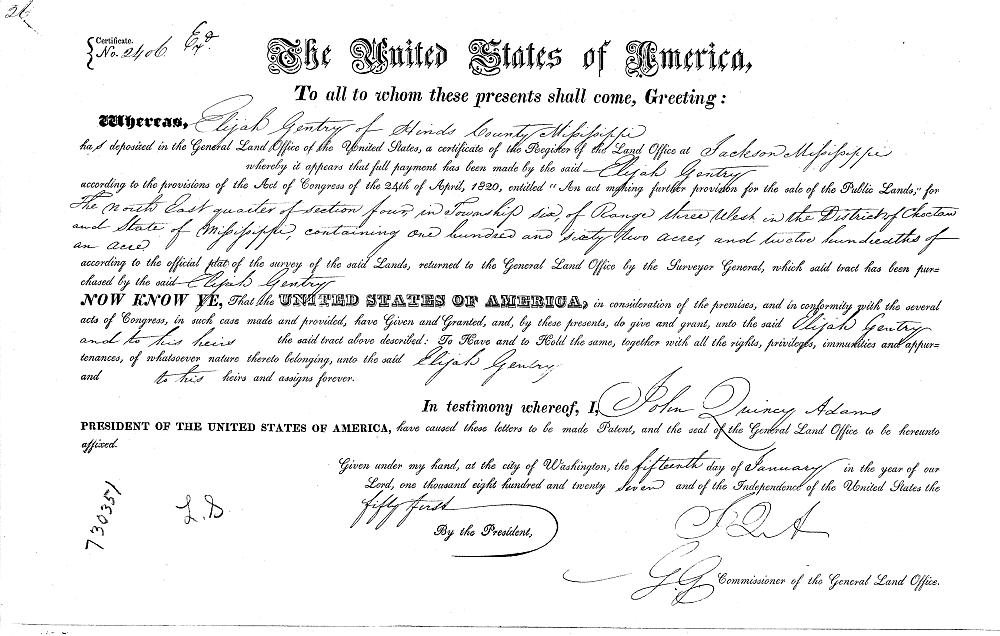 26
Certificate.
No. 2406 Exd.
The United States of America,
To all to whom these presents shall come, Greeting:
Whereas, Elijah Gentry of Hinds County Mississippi
has deposited in the General Land Office of the United States, a certificate of the Register of the Land Office at Jackson Mississippi
whereby it appears that full payment has been made by the said Elijah Gentry
according to the provisions of the Act of Congress of the 24th of April, 1820, entitled "An act making further provision for the sale of the Public Lands," for
The North East quarter of section four, in Township six, of Range three West in the District of Choctaw
and State of Mississippi, containing one hundred and sixty two acres, and twelve hundredths of
an acre
according to the official plat of the survey of the said Lands, returned to the General Land Office by the Surveyor General, which said tract has been pur-
chased by the said Elijah Gentry
NOW KNOW YE, That the UNITED STATES OF AMERICA, in consideration of the premises, and in conformity with the several
acts of Congress, in such case made and provided, have Given and Granted, and, by these presents, do give and grant, unto the said Elijah Gentry
and to his heirs the said tract above described: To Have and to Hold the same, together with all the rights, privileges, immunities and appur-
tenances, of whatsoever nature thereto belonging, unto the said Elijah Gentry
and to his heirs and assigns forever.
In testimony whereof, I, John Quincy Adams
PRESIDENT OF THE UNITED STATES OF AMERICA, have caused these letters to be made Patent, and the seal of the General Land Office to be hereunto
affixed.
Given under my hand, at the city of Washington, the fifteenth day of January in the year of our
Lord, one thousand eight hundred and twenty seven and of the Independence of the United States the
fifty first
By the President,
J Q A
G. G. Commissioner of the General Land Office.
L.S
730351